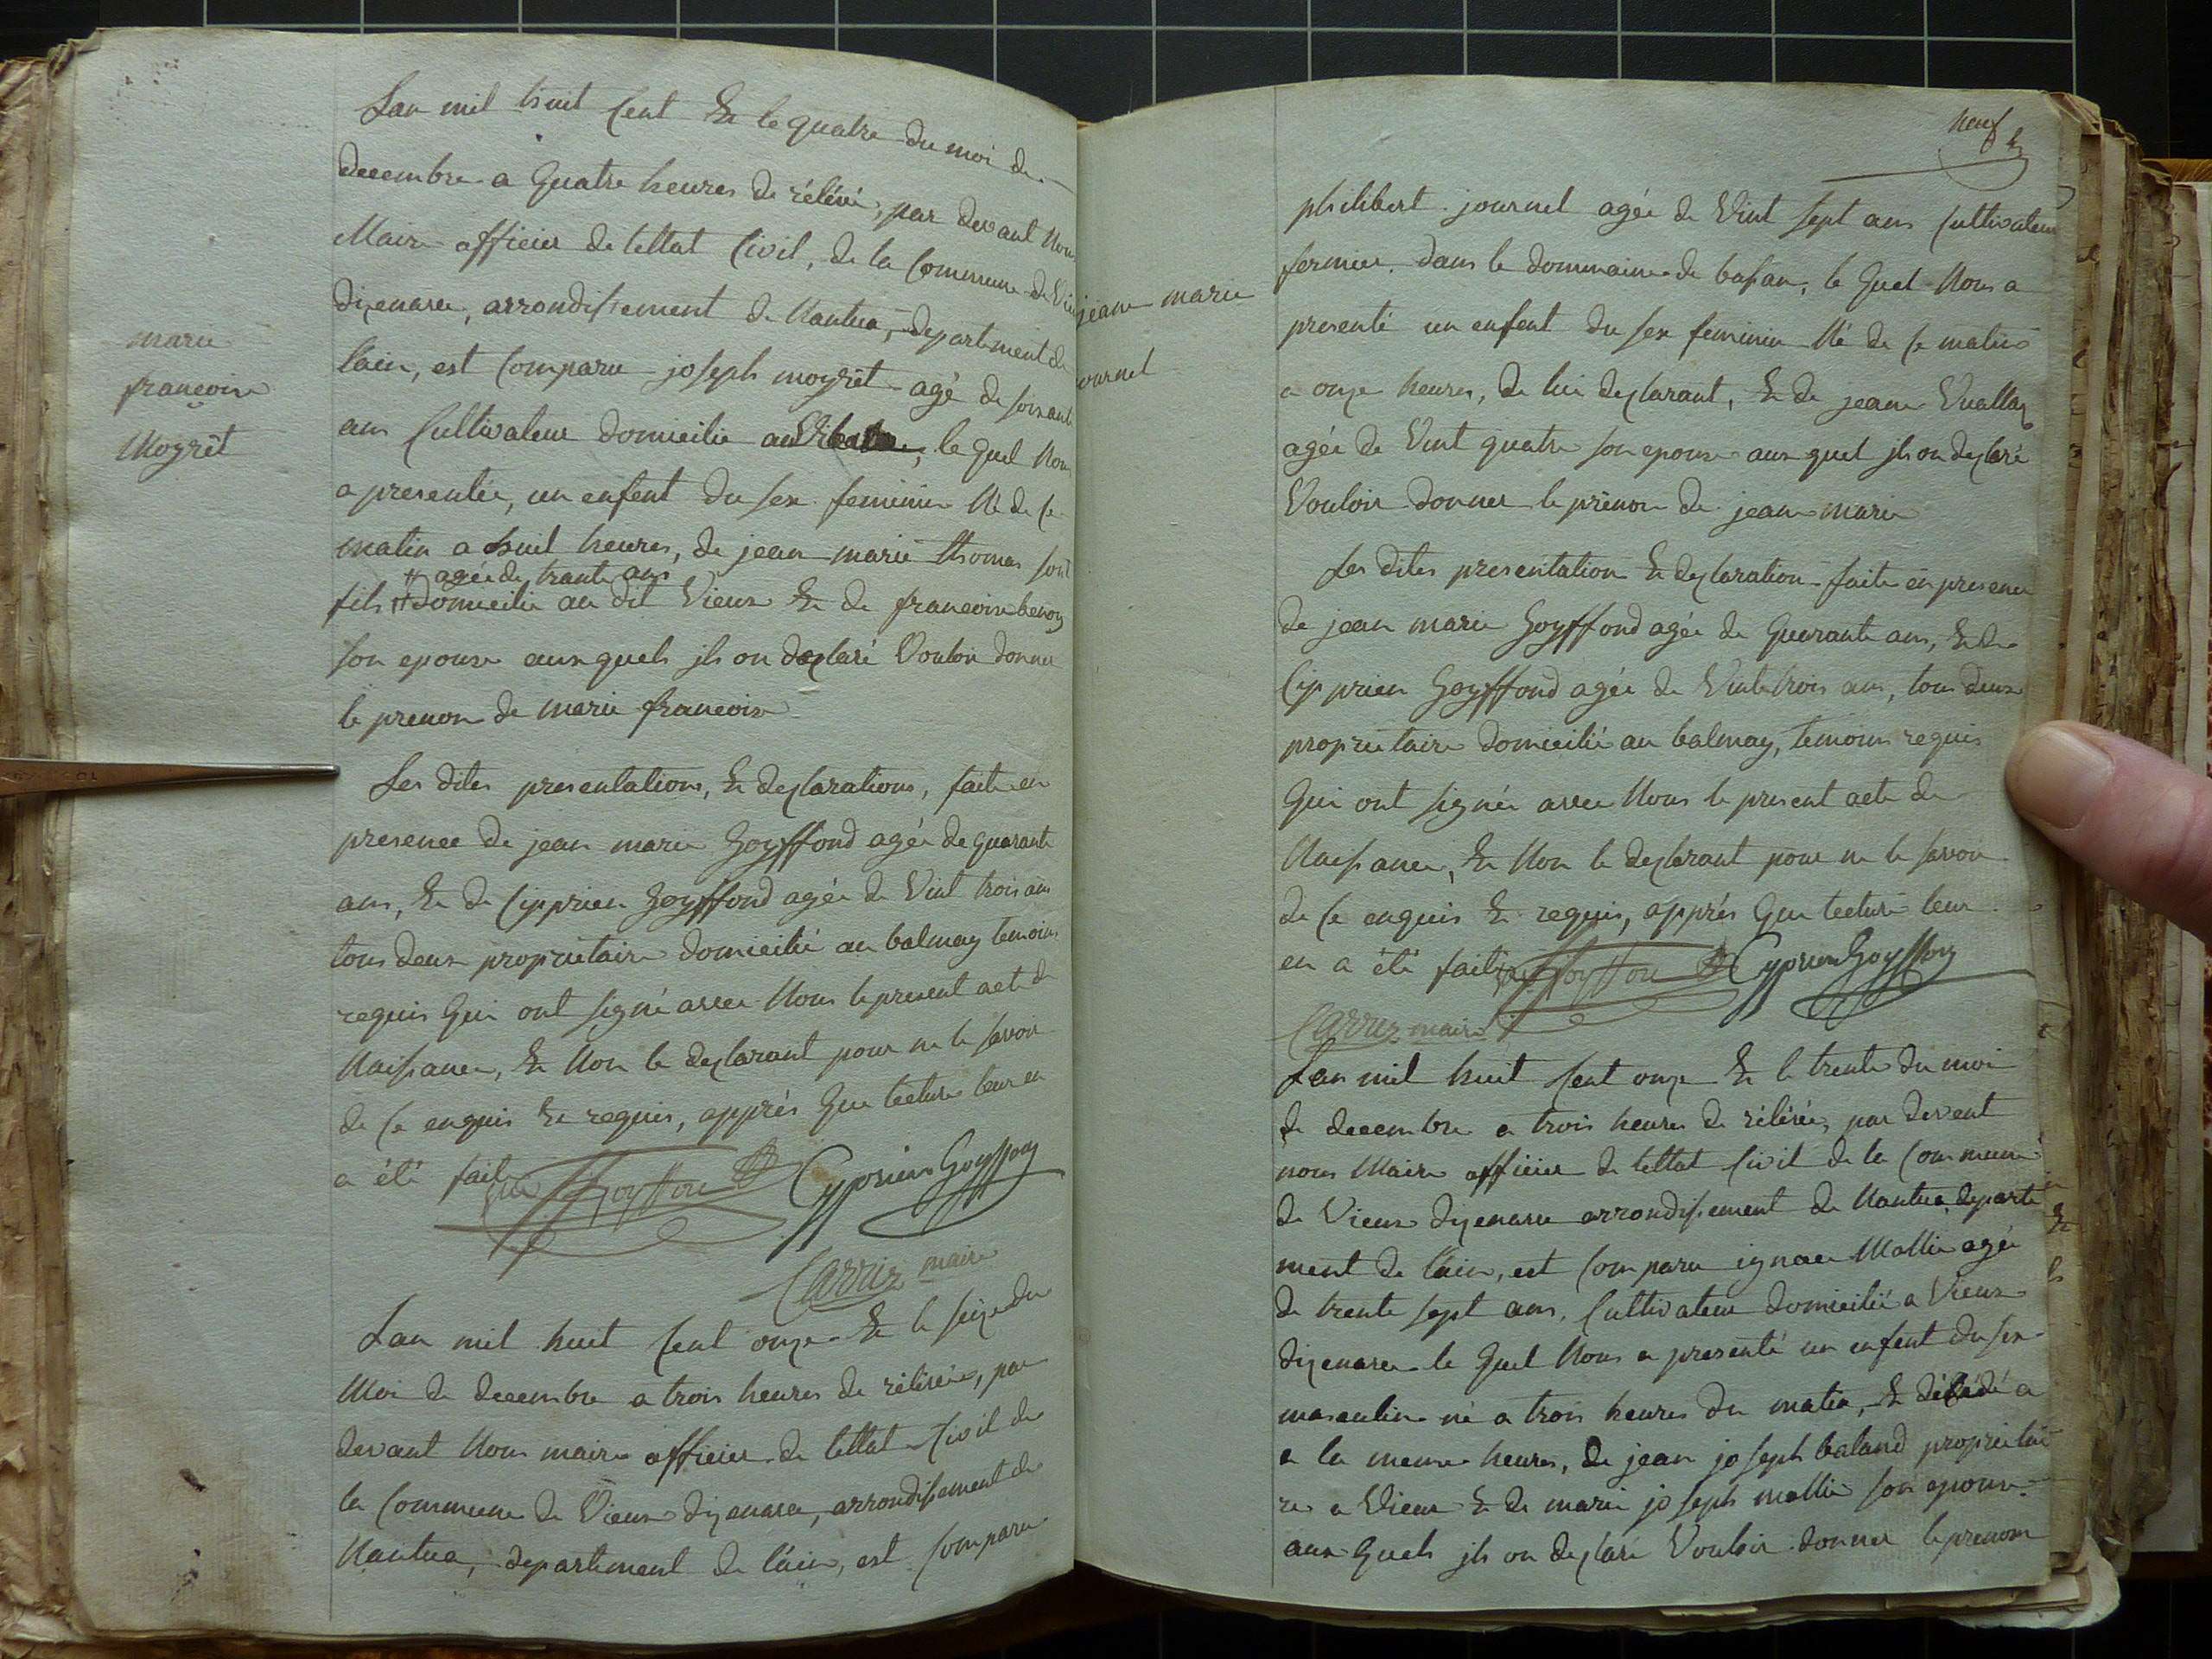 Lan mil huit Cent & le quatre du moi de
decembre a quatre heures de rélévé, par devant Nous
Maire officier de lettat Civil, de la Commune de Vieu
dizenave, arrondissement de Nantua, departement de
lain, est Comparu joseph moyrêt agé de soixante
ans Cultivateur domicilie au le quel Nous
a presentée, un enfent du sex feminin Né de Ce
matin a huit heures, de jean marie thomas sont
# agée de trante ans
fils # domicilie au dit Vieux & de francoise benoy
son epouse auxquels jls on declaré Vouloir donner
le prenom de marie francoise
Les dites presentations, & declarations, faite en
presence de jean marie Goyffond agée de quarante
ans, & de Cipprien Goyffond agée de Vint trois ans
tous deux proprietaire domicilié au balmay temoins
requis qui ont signé avec Nous le present acte de
Naissance, & Non le declarant pour ne le savoir
de Ce enquis & requis, apprés que lecture leur en
a été faite
Cyprien Goyffon
Carrier maire
Lan mil huit Cent onze & le seize du
Moi de decembre a trois heures de rélévée, par
devant Nous maire officier de lettat Civil de
la Commune de Vieux dizenave, arrondissement de
Nantua, departement de láin, est Comparu
marie
francoise
Moyrêt
neuf
jeane marie
journel
philibert journel agée de Vint sept ans Cultivateur
fermier dans le dommaine de bassan, le quel Nous a
presenté un enfent du sex feminin Né de Ce matin
a onze heures, de lui declarant, & de jeane Vuallaz
agée de Vint quatre son epouse aux quel jls on declaré
Vouloir donner le prénom de jeane marie
Les dites presentation & declaration faite en presence
de jean marie Goyffond agée de quarante ans, & de
Cipprien Goyffond agée de Vint trois ans, tous deux
proprietaire domicilié au balmay, temoins requis
qui ont signée avec Nous le present acte de
Naissance, & Non le declarant pour ne le savoir
de Ce enquis & requis, apprés que lecture leur
en a été faite
Cyprien Goyffon
Carrier maire
Lan mil huit Cent onze & le trente du moi
de decembre a trois heures de rélévée, par devent
nous Maire officier de lettat Civil de la Commune
de Vieux dizenave arrondissement de Nantua, departe
ment de láin, est Comparu ignace Mollie agé
de trente sept ans, Cultivateur domicilié a Vieux
dizenave le quel Nous a presenté un enfent du sex
masculin né a trois heures du matin, & décédé a
a la meme heures, de jean joseph baland proprietai
re a Vieux & de marie joseph mollie son epouse
aux quels jls on declaré Vouloir donner le prenom